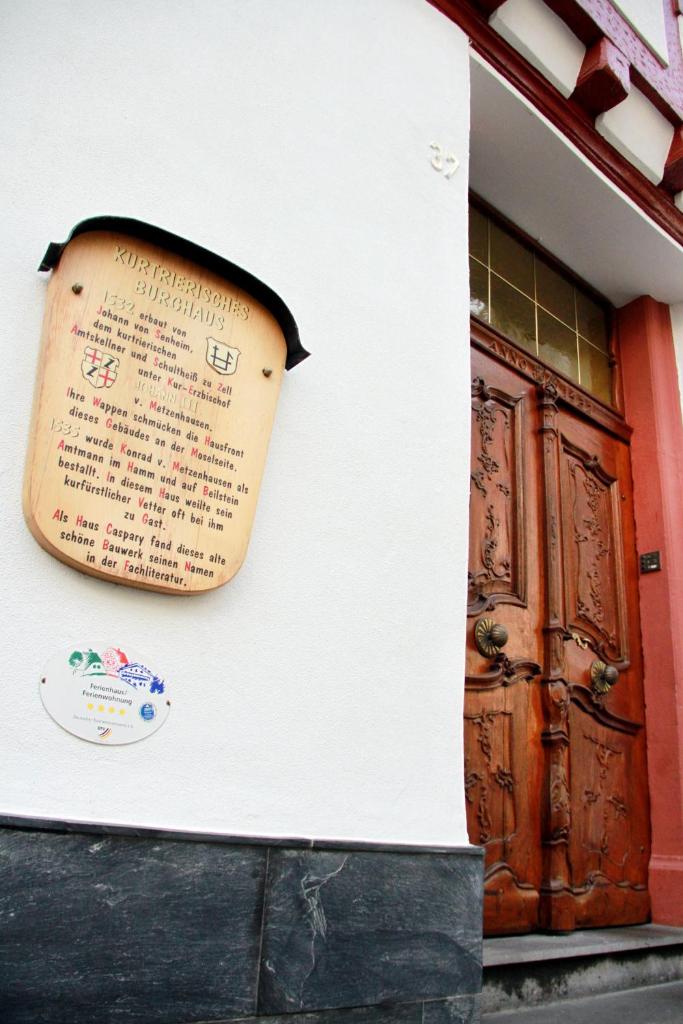 37
KURTRIERISCHES
BURGHAUS
1532 erbaut von
Johann von Senheim,
dem kurtrierischen
Amtskellner und Schultheiß zu Zell
unter Kur-Erzbischof
JOHANN III
v. Metzenhausen.
Ihre Wappen schmücken die Hausfront
dieses Gebäudes an der Moselseite.
1535 wurde Konrad v. Metzenhausen als
Amtmann im Hamm und auf Beilstein
bestallt. In diesem Haus weilte sein
kurfürstlicher Vetter oft bei ihm
zu Gast.
Als Haus Caspary fand dieses alte
schöne Bauwerk seinen Namen
in der Fachliteratur.
ANNO 1532
Ferienhaus/
Ferienwohnung
Deutscher Tourismusverband e.V.
DTV